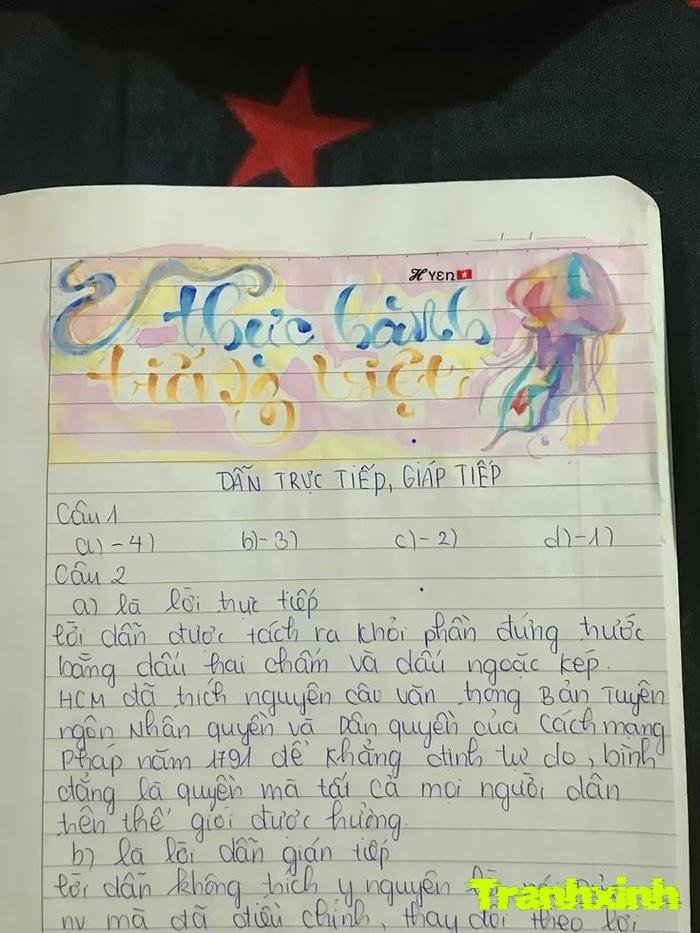 Hyεn
thực hành
tiếng việt
DẪN TRỰC TIẾP, GIÁP TIẾP
Câu 1
a) - 4) b) - 3) c) - 2) d) - 1)
Câu 2
a) là lời trực tiếp
lời dẫn được tách ra khỏi phần đứng trước
bằng dấu hai chấm và dấu ngoặc kép.
HCM đã trích nguyên câu văn trong Bản Tuyên
ngôn Nhân quyền và Dân quyền của Cách mạng
Pháp năm 1791 để khẳng định tự do, bình
đẳng là quyền mà tất cả mọi người dân
trên thế giới được hưởng.
b) là lời dẫn gián tiếp
lời dẫn không trích y nguyên
Tranhxinh
nv mà đã điều chỉnh, thay đổi theo lời